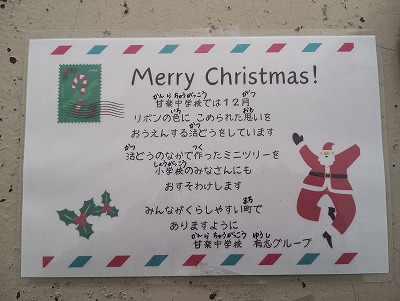 Merry Christmas!
甘楽中学校では12月
リボンの色に こめられた思いを
おうえんする活どうをしています
活どうのなかで作ったミニツリーを
小学校のみなさんにも
おすそわけします
みんながくらしやすい町で
ありますように
甘楽中学校 有志グループ